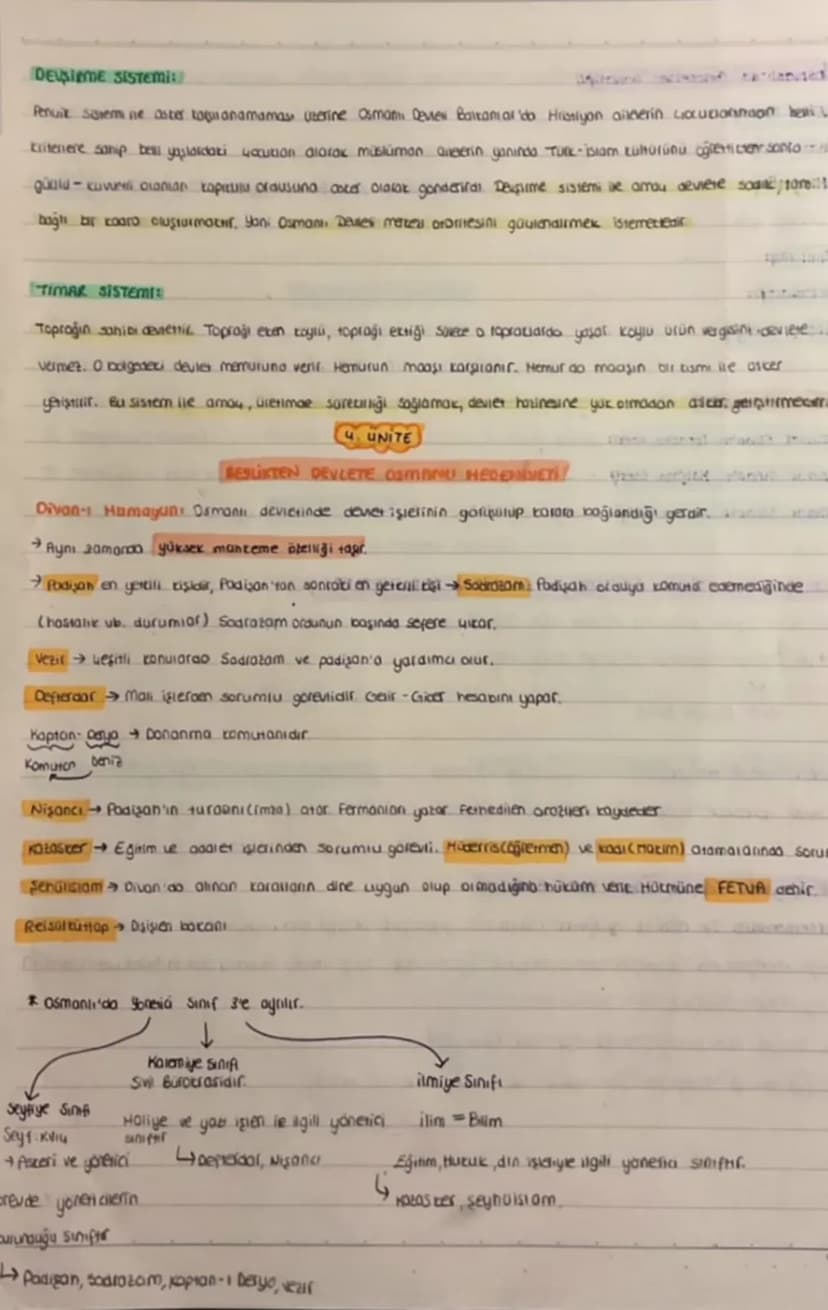 DEVŞİRME SİSTEMİ:
Pençik sistemine asker karşılanamaması üzerine Osmanlı Devleti Balkanlar'da Hristiyan ailelerin çocuklarından belli
kriterlere sahip belli yaşlardaki çocukları alarak müslüman ailelerin yanında Türk-islam kültürünü öğrettikten sonra
güçlü - kuvvetli olanları kapıkulu ordusuna asker olarak gönderirdi. Devşirme sistemi ile amaç devlete sadık,
bağlı bir kadro oluşturmaktır. Yani Osmanlı Devleti merkezi otoritesini güçlendirmek istemektedir.
TIMAR SİSTEMİ:
Toprağın sahibi devlettir. Toprağı eken köylü, toprağı ektiği sürece o topraklarda yaşar. Köylü ürün vergisini devlete
vermez. O bölgedeki devlet memuruna verir. Memurun maaşı karşılanır. Memur da maaşın bir kısmı ile asker
yetiştirir. Bu sistem ile amaç, üretimde sürekliliği sağlamak, devlet hazinesine yük olmadan asker
4. ÜNİTE
BEYLİKTEN DEVLETE OSMANLI MEDENİYETİ!
Divan-ı Hümayun: Osmanlı devletinde devlet işlerinin görüşülüp karara bağlandığı yerdir.
→ Aynı zamanda yüksek mahkeme özelliği taşır.
→ Padişah en yetkili kişidir, Padişah'tan sonraki en yetkili kişi → Sadrazam: Padişah orduya komuta edemediğinde
(hastalık vb. durumlar) Sadrazam ordunun başında sefere çıkar.
Vezir → Çeşitli konularda Sadrazam ve padişah'a yardımcı olur.
Defterdar → Mali işlerden sorumlu görevlidir. Gelir - Gider hesabını yapar.
Kaptan- Derya → Donanma komutanıdır
Komutan Deniz
Nişancı → Padişah'ın turasını (imza) atar. Fermanları yazar. Fethedilen arazileri kaydeder
Kazasker → Eğitim ve adalet işlerinden sorumlu görevli. Müderris (öğretmen) ve kadı (Hakim) atamalarında
Şehülislam → Divan'da alınan kararların dine uygun olup olmadığına hüküm verir. Hükmüne FETVA denir.
Reisülküttap → Dışişleri bakanı
* Osmanlı'da yönetici sınıf 3'e ayrılır.
Kalemiye Sınıfı
Sivil Bürokrasidir.
ilmiye Sınıfı
Seyfiye Sınıfı
Maliye ve yazı işleri ile ilgili yönetici
ilim = Bilim
Seyf: Kılıç
sınıftır
→ Askeri ve yönetici
↳ Defterdar, Nişancı
Eğitim, Hukuk, din işleriyle ilgili yönetici sınıftır.
yöneticilerin
↳ Kazasker, şeyhülislam.
bulunduğu sınıftır
↳ Padişah, Sadrazam, Kaptan-ı Derya, vezir